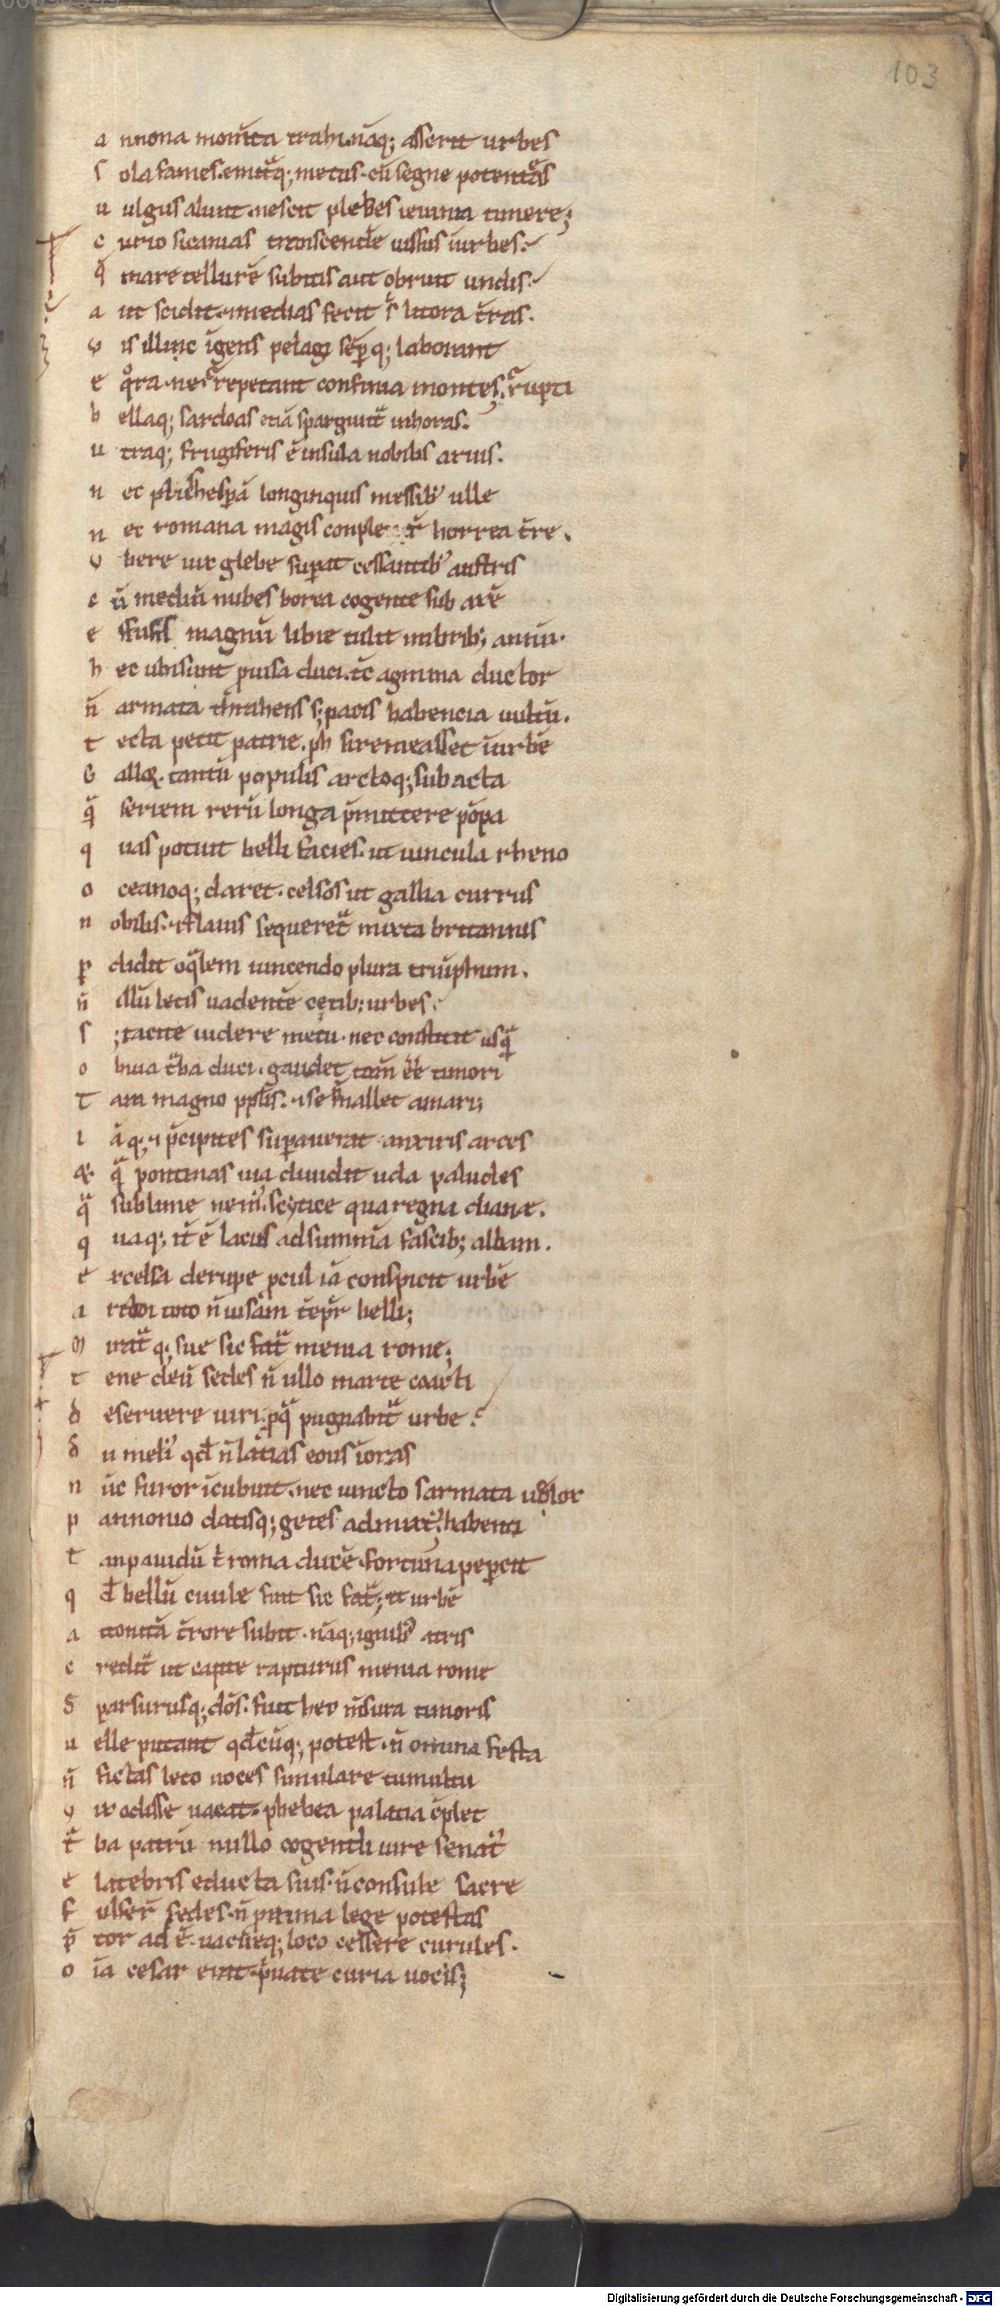 103
a nnona momta trahi. naq; asserit urbes
s ola fames. emitq; metus. cū segne potentes
u ulgus alunt. nescit plebes ieiunia timere;
c urio sicanias transcendere iussus ī urbes.
q̄ mare tellurē subitis aut obruit undis.
a ut scidit. medias fecit s̄ litora t̄ras.
v is illinc īgens pelagi sēpq; laborant
e q̊ra. ne repetant confinia montes. rupti
b ellaq; sardoas etiā spargunt̄ in horas.
u traq; frugiferis ē insula nobilis aruis.
n ec hespā longinquis messib; ulle
n ec romana magis horrea t̄re.
v bere uix glebe supat cessantib; austris
c ū mediū nubes borea cogente sub axē
e ffusis magnū libie tulit imbrib; annū.
h ec ubi sunt puisa duci. t̄c agmina ductor
n̄ armata trahens s; pacis habencia uultū.
t ecta petit patrie. ph si remeasset ī urbē
G allor. tantū populis arctoq; subacta
q̄ seriem rerū longa p̄mittere pōpa
q uas potuit belli facies. ut uincula rheno
o ceanoq; daret. celsos ut gallia currus
n obilis. ⁊ flauis sequeret̄ mixta britannis
p didit o q̄lem uincendo plura triūphum.
n̄ illū letis uadentē cetib; urbes.
s ; tacite uidere metu. nec constitit usq̄
o buia t̄ba duci. gaudet tam̄ ēē timori
T am magno pplis. ⁊ se n̄ mallet amari;
i āq; ⁊ p̄cipites supauerat anxuris arces
⁊ q̄ pontinas uia diuidit uda paludes
q̄ sublime nem;. scytice qua regna diane.
q uaq; it̄ ē lacus ad summā fascib; albam.
e xcelsa de rupe pcul iā conspicit urbē
a rctoi toto n̄ uisam tēpr̄ belli;
M irat̄ q; sue sic fat̄ menia rome;
t ene deū sedes n̄ ullo marte coacti
d eseruere uiri. p q̄ pugnabit̄ urbe.
d ii meli; qd̄ n̄ latias eous ī oras
n ūc furor īcubuit. nec iuncto sarmata uelox
p annonio datisq; getes admixt; habenti
t an pauidū t̄ roma ducē. fortuna pepcit
q d̄ bellū ciuile fuit sic fat̄; et urbē
a ttonitā t̄rore subit. nāq; ignib; atris
c redit̄ ut capte rapturus menia rome
S parsurusq; dōs. fuit hec m̄sura timoris
u elle putant qd̄cūq; potest. n̄ omina festa
n̄ fictas leto uoces simulare tumultu
v ix odisse uacat. phebea palatia c̄plet
t̄ ba patrū nullo cogendi iure senat;
e latebris educta suis. n̄ consule sacre
f ulser̄ sedes. n̄ pxima lege potestas
p̄ tor adē. uacueq; loco cessere curules.
o ia cesar erat. p̄uate curia uocis;
Digitalisierung gefördert durch die Deutsche Forschungsgemeinschaft - DFG